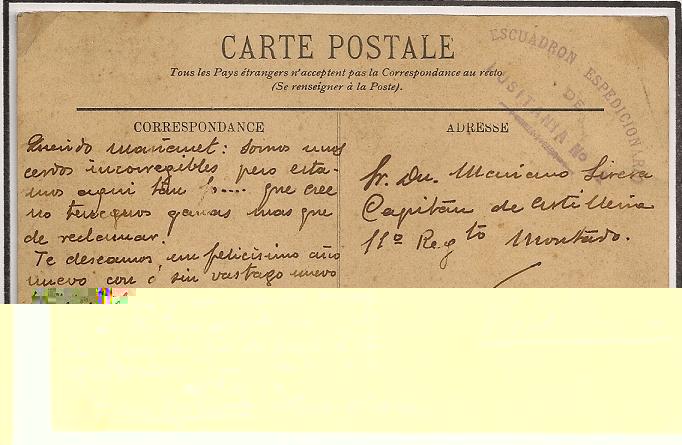 CARTE POSTALE
Tous les Pays étrangers n'acceptent pas la Correspondance au recto
(Se renseigner à la Poste).
ESCUADRON EXPEDICIONARIO
DE
LUSITANIA Nº
CORRESPONDANCE
Querido Mariamet: somos unos
cerdos incorregibles pero esta-
mos aqui tan .... que cree
no tenemos ganas mas que
de reclamar.
Te deseamos un felicisimo año
nuevo con ó sin vastago nuevo
ADRESSE
Sr. Dn. Mariano
Capitán de Artilleria
11º Regto Montado.